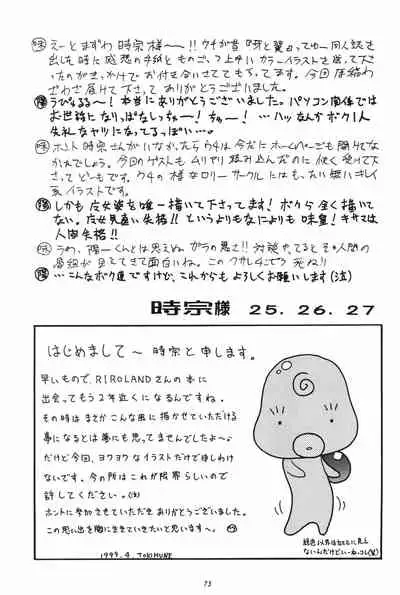 えーとまずわ時宗様〜!! ウチが昔『牙と翼』ってゆー同人誌を
出した時に感想の手紙とものごっつ上手いカラーイラストを贈って下さ
ったのがきっかけでお付き合いさせてもらってます。今回原稿わ
ざわざ届けて下さって ありがとうございました。
うびゅるる〜! 本当にありがとうございました。パソコン関係では
お世話になりっぱなしっちゃー! ちゅー! …ハッなんかボク1人
失礼なヤツになってるっぽい…。
ホント 時宗さんがいなかったら ウチは 今だに ホームページも開けてな
かたでしょう。今回のゲストも ムリヤリ 頼み込んだのに 快く受けて下さ
って どーもです。ウチの様なロリーサークルにはもったい無いキレイ
しかも 女姿を唯一描いて下さってます! ボクら全く描いて
ない。失格!! というよりもなによりも キサマは
人間失格!!
陽一くんとは思えぬ ガラの悪さ!! 対談やってると その人間の
見えてきて面白いね。
…こんなボク達ですけど、これからもよろしくお願いします(泣)
時宗様 25. 26. 27
はじめまして〜 時宗と申します。
早いもので、RIROLANDさんの本に
出会ってもう2年近くになるんですね。
その時は まさか こんな風に描かせていただける
事になるとは夢にも思ってませんでしたよ〜
だけど今回、ヨワヨワなイラストだけで申しわけ
ないです。今の所はこれが限界らしいので
許してください。(汗)
ホントに参加させていただき ありがとうございました。
この思い出を胸に生きていきたいと思います〜。
1999.4. TOKIMUNE
73